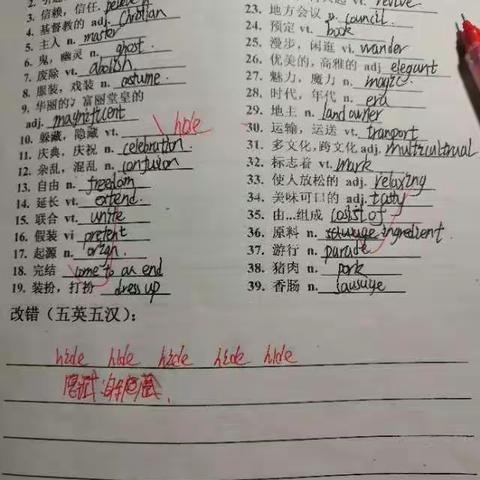 3. 信赖，信任. believe in
4. 基督教的 adj. Christian
5. 主人 n. master
6. 鬼，幽灵 n. ghost.
7. 废除 vt. abolish
8. 服装，戏装 n. costume.
9. 华丽的，富丽堂皇的
adj. magnificent
10. 躲藏，隐藏 vt. hide
11. 庆典，庆祝 n. celebration.
12. 杂乱，混乱 n. confusion
13. 自由 n. freedom
14. 延长 vt. extend.
15. 联合 vt. unite
16. 假装 vi pretent
17. 起源 n. orign.
18. 完结 come to an end
19. 装扮，打扮 dress up
revive
23. 地方会议 n. council.
24. 预定 vt. book
25. 漫步，闲逛 vi. wander
26. 优美的，高雅的 adj. elegant
27. 魅力，魔力 n. magic.
28. 时代，年代 n. era
29. 地主 n. landowner
30. 运输，运送 vt. transport
31. 多文化，跨文化 adj. multicultrual
32. 标志着 vt. mark
33. 使人放松的 adj. relaxing
34. 美味可口的 adj. tasty
35. 由...组成 cosist of
36. 原料 n. sausuge ingredient
37. 游行 n. parade
38. 猪肉 n. pork
39. 香肠 n. sausuge
改错（五英五汉）：
hide hide hide hide hide